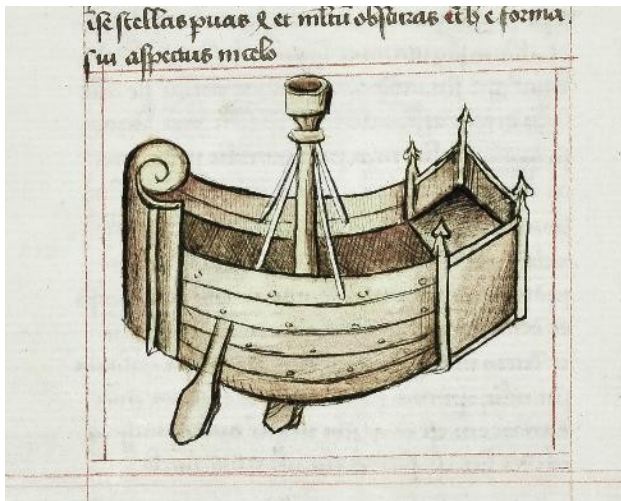 ise stellas puas & et ml̅tu̅ obscuras et̅ h̅ e forma
sui aspectus in celo